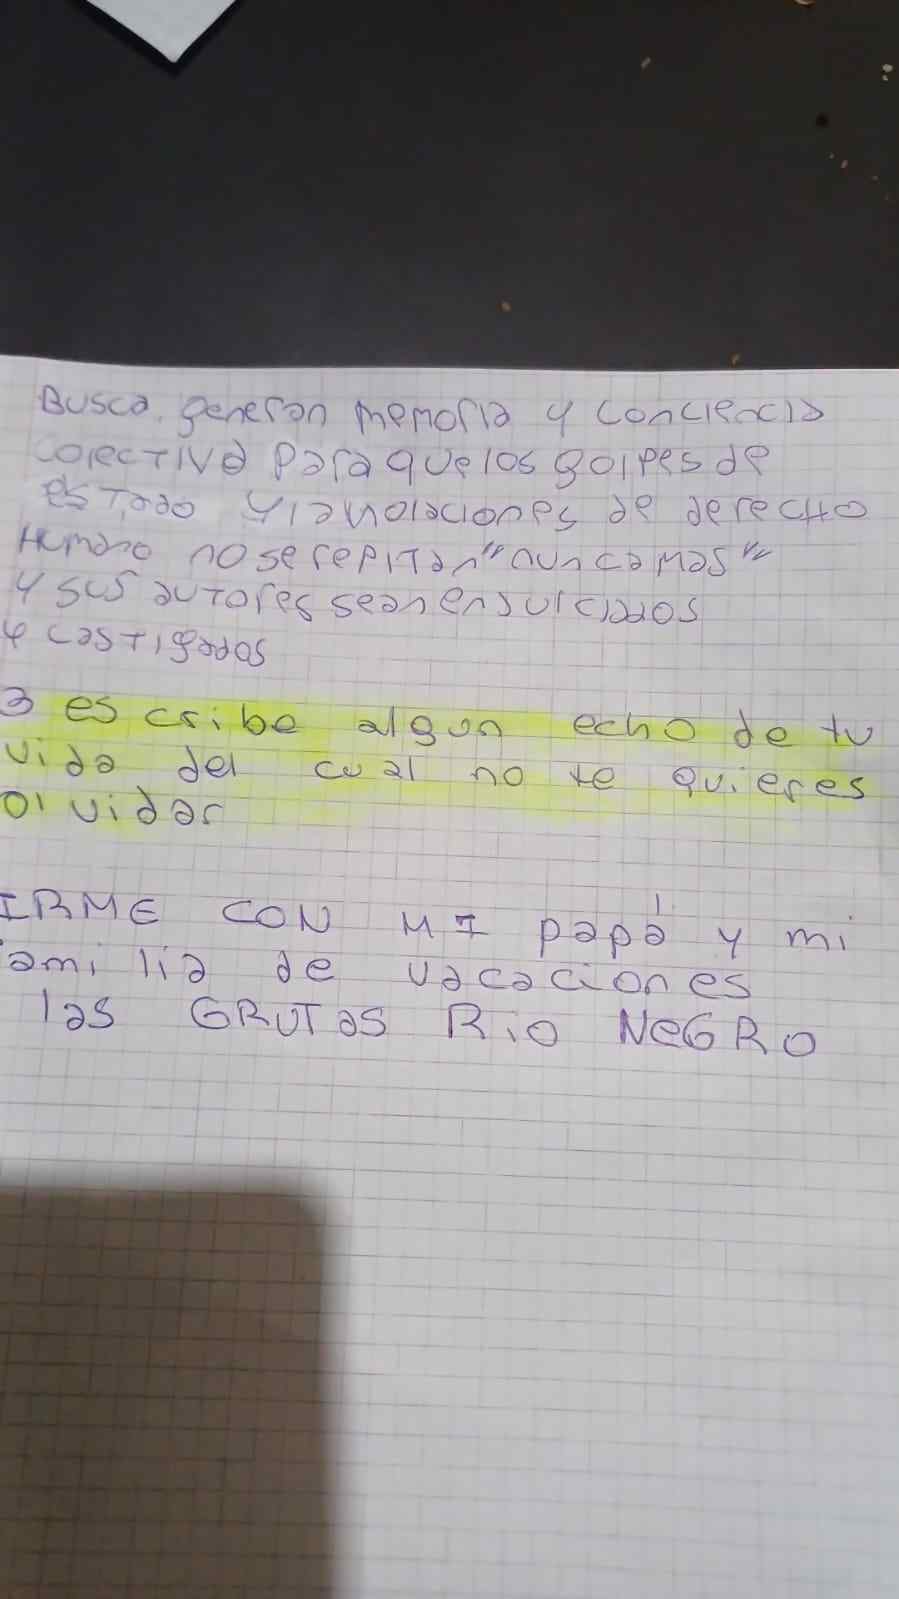 Busca generan memoria y conciencia
colectiva para que los golpes de
estado y la violaciones de derecho
Humano no se repitan "nunca mas"
y sus autores sean enjuiciados
y castigados
3 escribe algun echo de tu
vida del cual no te quieres
olvidar
IRME CON MI papá y mi
amilia de vacaciones
las GRUTas Rio NeGRO